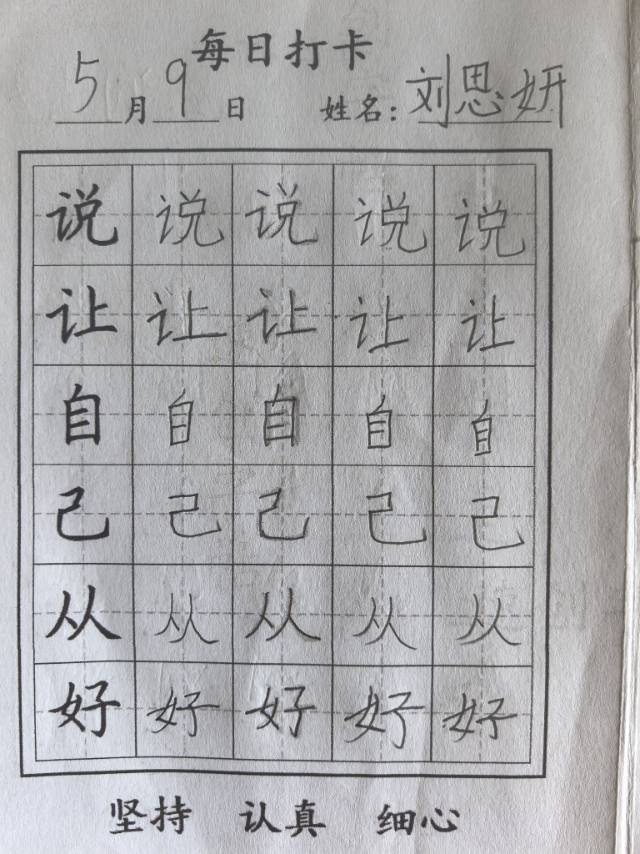 每日打卡
5月9日 姓名:刘思妍
说 说 说 说 说
让 让 让 让 让
自 自 自 自 自
己 己 己 己 己
从 从 从 从 从
好 好 好 好 好
坚持 认真 细心